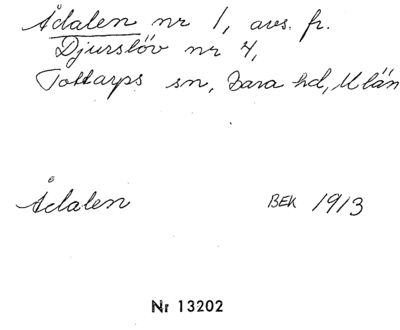 Ådalen nr 1, avs. fr.
Djurslöv nr 4,
Tottarps sn, Bara hd, M län
Ådalen BEK 1913
Nr 13202